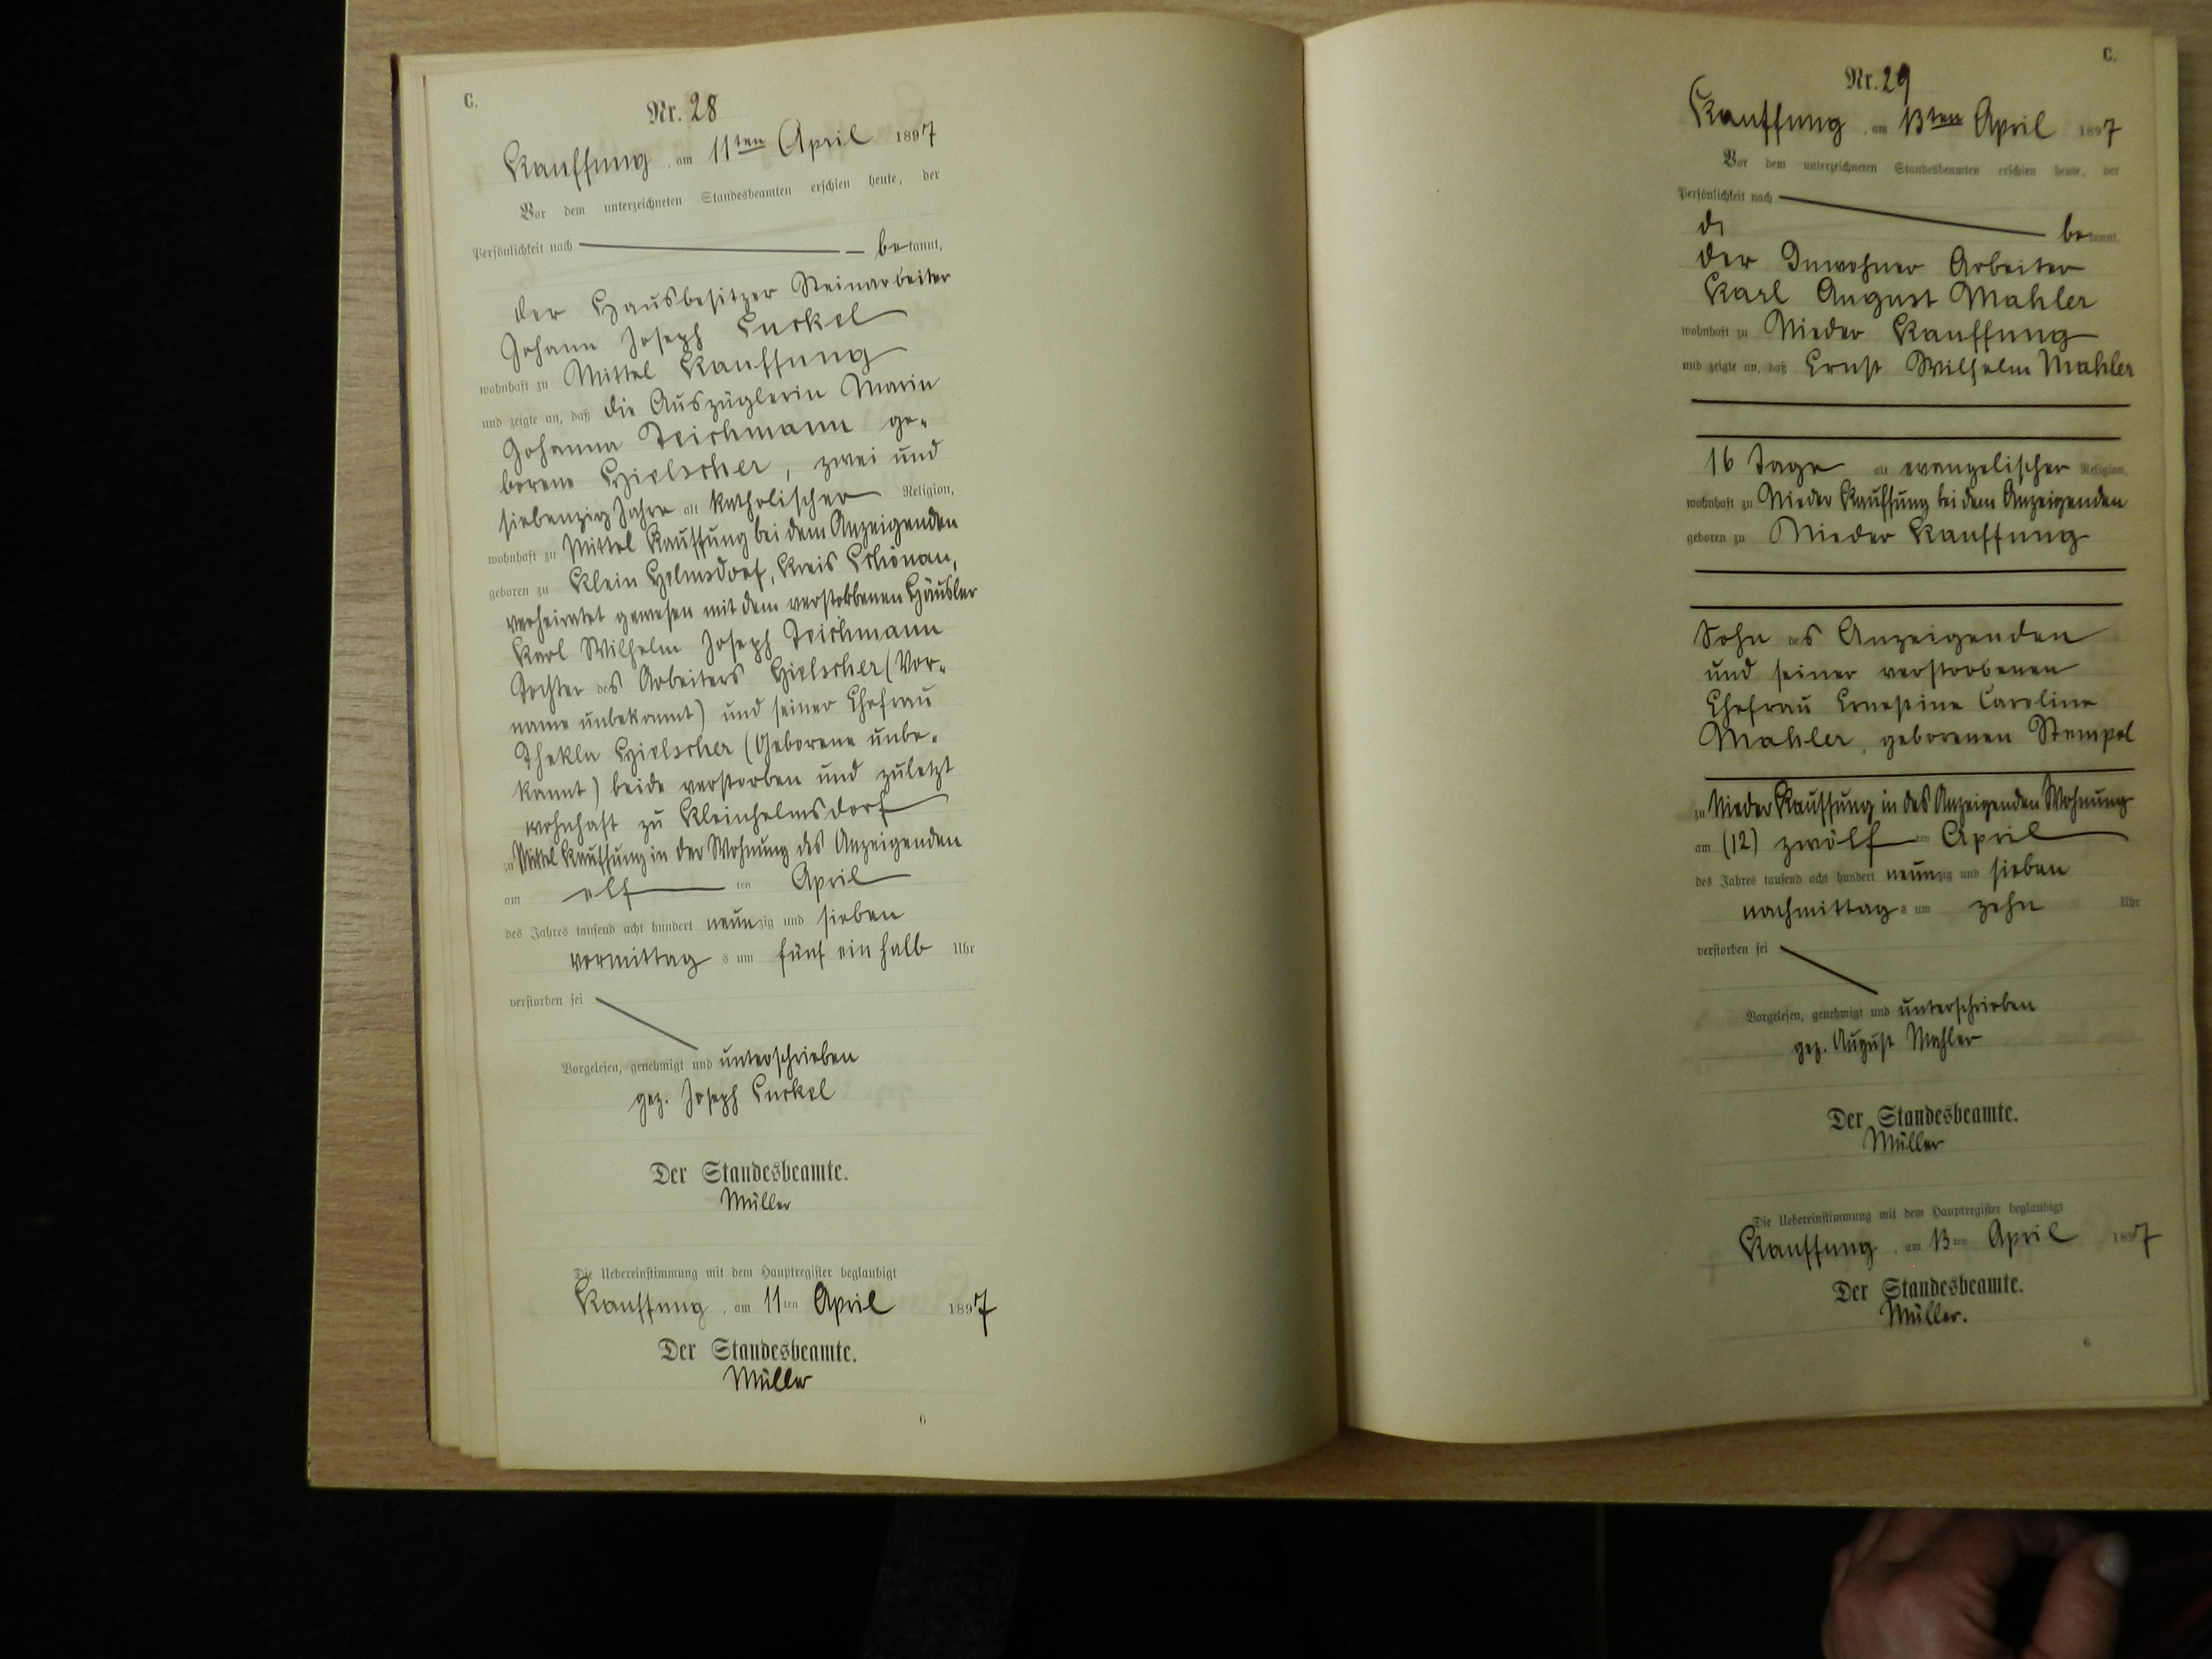 C.
Nr. 28
Kauffung, am 11ten April 1897
Vor dem unterzeichneten Standesbeamten erschien heute, der
Persönlichkeit nach — bekannt,
der Hausbesitzer Steinarbeiter
Johann Joseph
wohnhaft zu Mittel Kauffung
und zeigte an, daß die Auszüglerin Maria
Johanna Teichmann ge-
borene Hielscher, zwei und
siebenzig Jahre alt katholischer Religion,
wohnhaft zu Mittel Kauffung bei dem Anzeigenden
geboren zu Klein Helmsdorf, Kreis Schönau,
verheiratet gewesen mit dem verstorbenen Häusler
Karl Wilhelm Joseph Teichmann
Tochter des Arbeiters Hielscher (Vor-
name unbekannt) und seiner Ehefrau
Thekla Hielscher (Geborene unbe-
kannt) beide verstorben und zuletzt
wohnhaft zu Kleinhelmsdorf
zu Mittel Kauffung in der Wohnung des Anzeigenden
am elf ten April
des Jahres tausend acht hundert neunzig und sieben
vormittags um fünf ein halb Uhr
verstorben sei
Vorgelesen, genehmigt und unterschrieben
gez. Joseph
Der Standesbeamte.
Müller
Die Uebereinstimmung mit dem Hauptregister beglaubigt
Kauffung, am 11ten April 1897
Der Standesbeamte.
Müller
6
C.
Nr. 29
Kauffung, am 13ten April 1897
Vor dem unterzeichneten Standesbeamten erschien heute, der
Persönlichkeit nach — bekannt,
di
der Inwohner Arbeiter
Karl August Mahler
wohnhaft zu Nieder Kauffung
und zeigte an, daß Ernst Wilhelm Mahler
16 Tage alt evangelischer Religion,
wohnhaft zu Nieder Kauffung bei dem Anzeigenden
geboren zu Nieder Kauffung
Sohn des Anzeigenden
und seiner verstorbenen
Ehefrau Ernestine Caroline
Mahler, geborenen Stempel
zu Nieder Kauffung in des Anzeigenden Wohnung
am (12) zwölf ten April
des Jahres tausend acht hundert neunzig und sieben
nachmittags um zehn Uhr
verstorben sei
Vorgelesen, genehmigt und unterschrieben
gez. August Mahler
Der Standesbeamte.
Müller
Die Uebereinstimmung mit dem Hauptregister beglaubigt
Kauffung, am 13ten April 1897
Der Standesbeamte.
Müller.
6